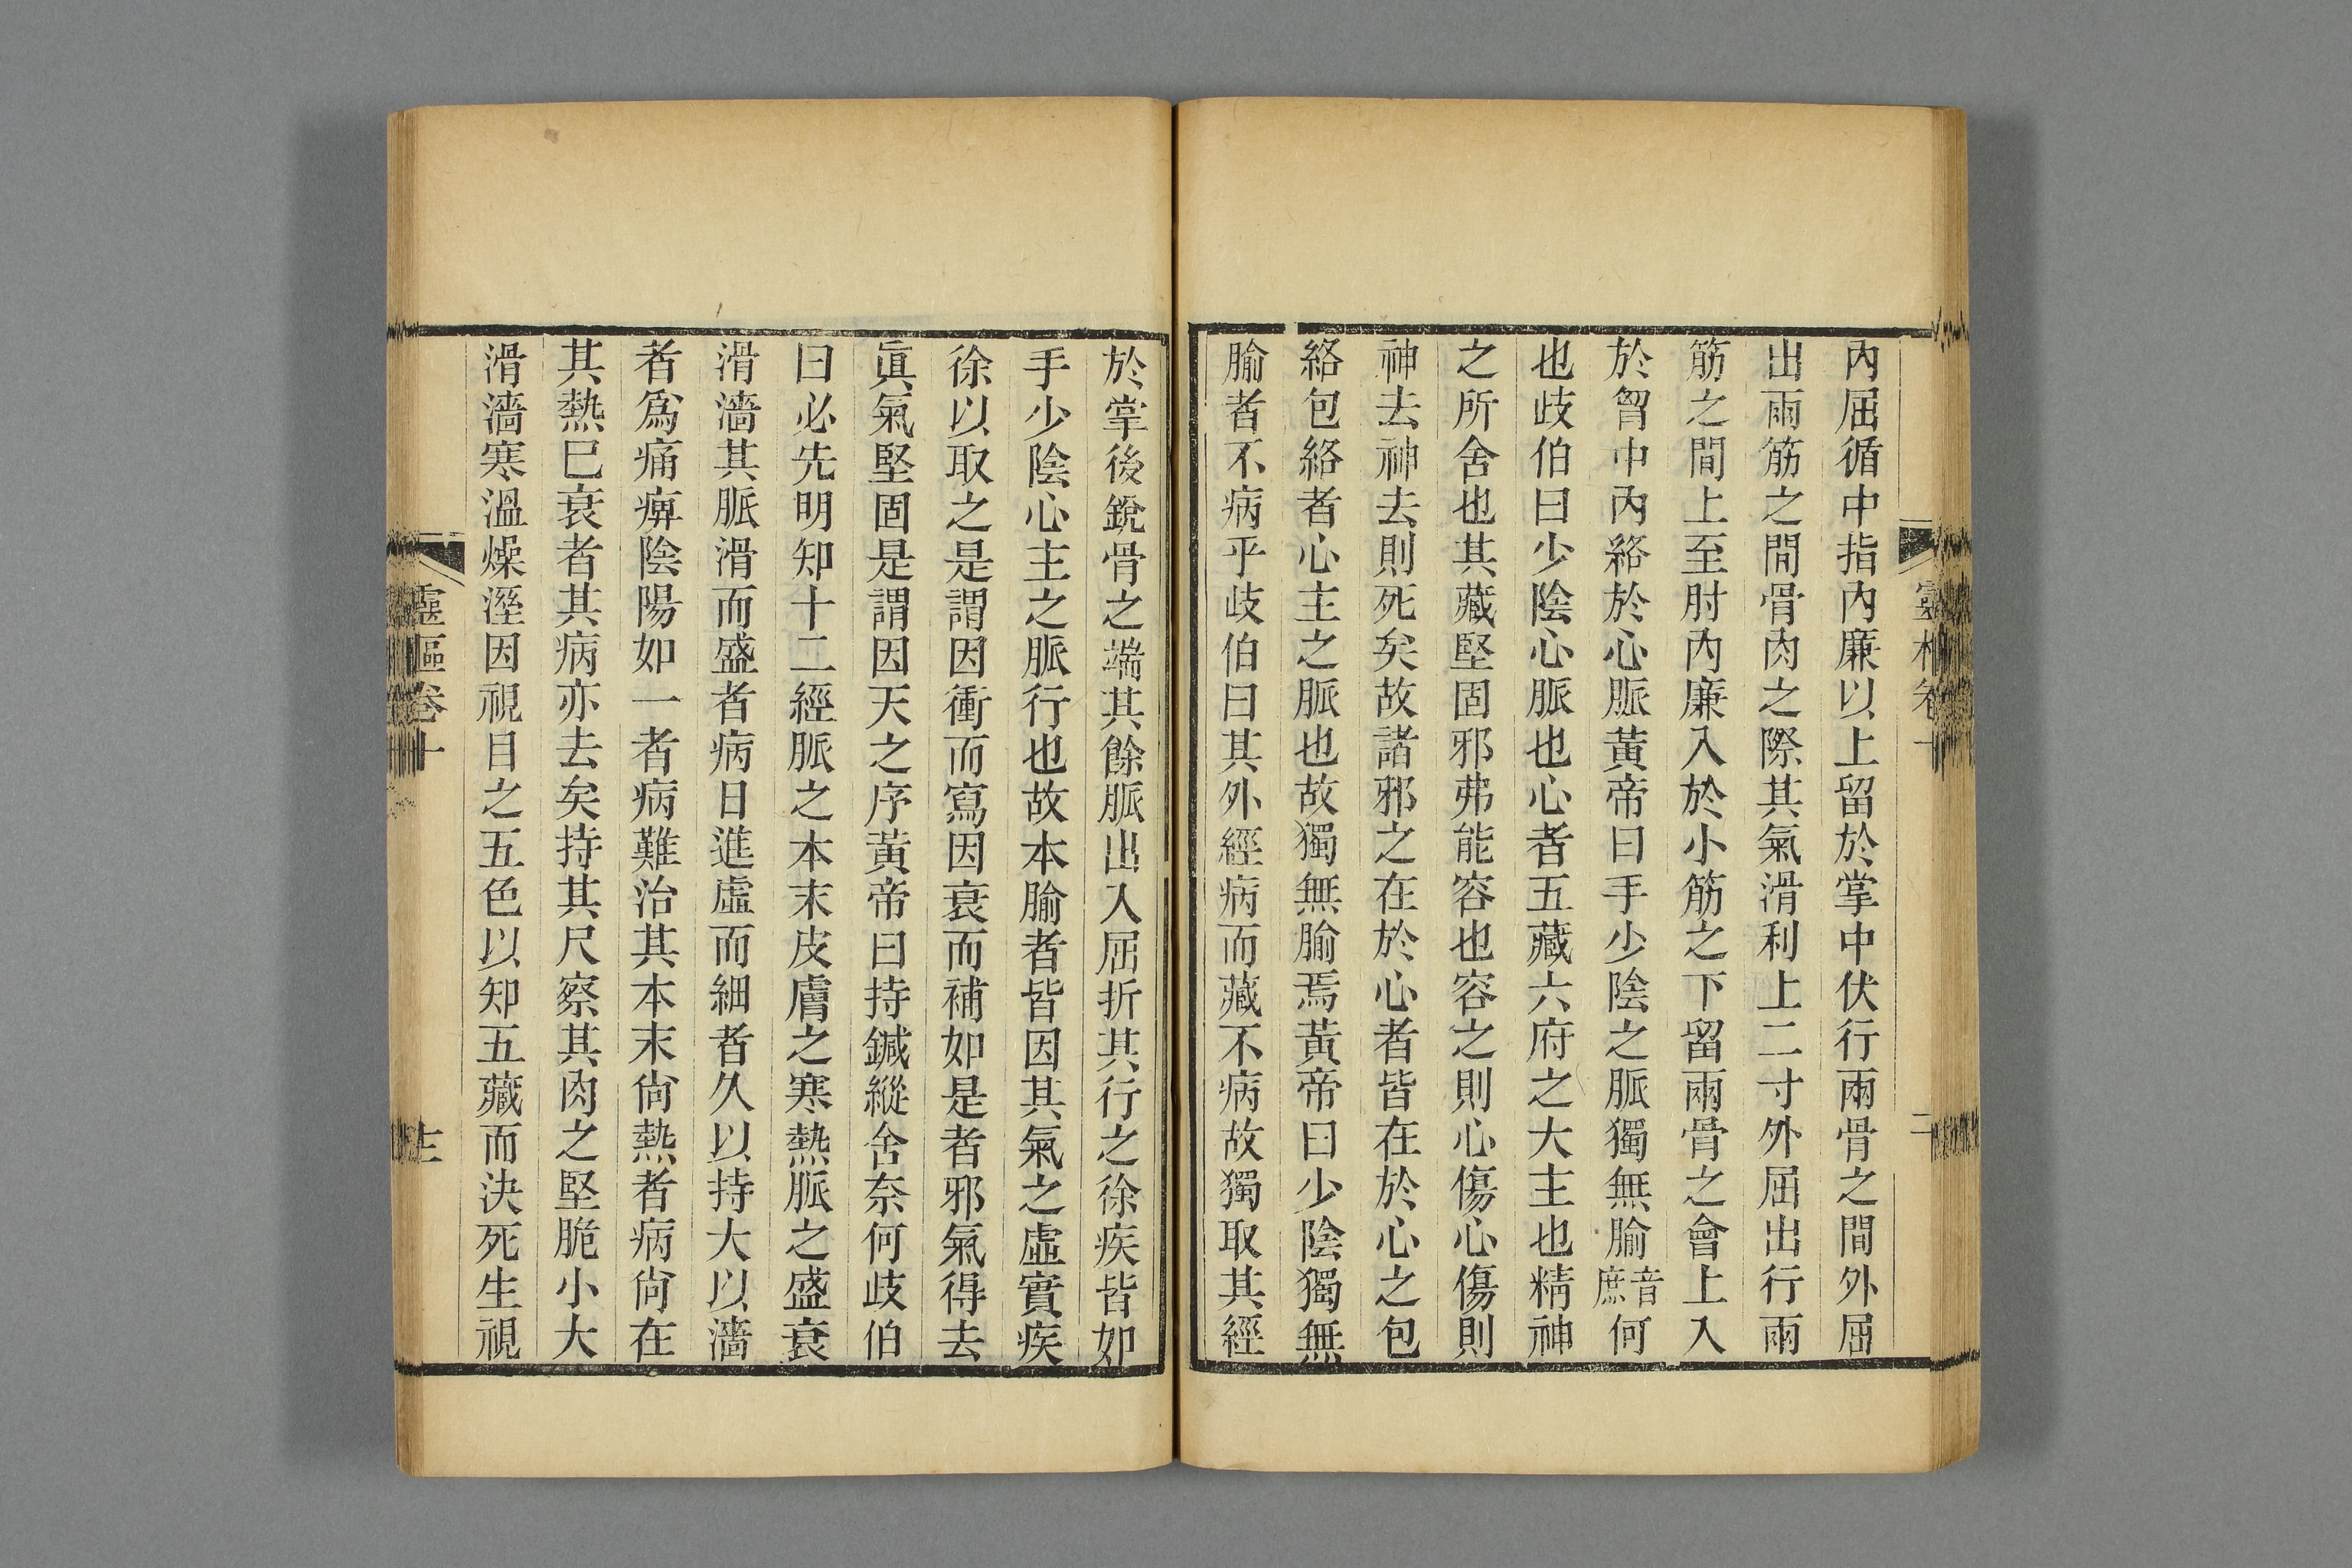 內屈循中指內廉以上留於掌中伏行兩骨之間外屈
出兩筋之間骨肉之際其氣滑利上二寸外屈出行兩
筋之間上至肘內廉入於小筋之下留兩骨之會上入
於胷中內絡於心脈黃帝曰手少陰之脈獨無腧音庶何
也歧伯曰少陰心脈也心者五藏六府之大主也精神
之所舍也其藏堅固邪弗能容也容之則心傷心傷則
神去神去則死矣故諸邪之在於心者皆在於心之包
絡包絡者心主之脈也故獨無腧焉黃帝曰少陰獨無
腧者不病乎歧伯曰其外經病而藏不病故獨取其經
於掌後銳骨之端其餘脈出入屈折其行之徐疾皆如
手少陰心主之脈行也故本腧者皆因其氣之虛實疾
徐以取之是謂因衝而寫因衰而補如是者邪氣得去
眞氣堅固是謂因天之序黃帝曰持鍼縱舍奈何歧伯
曰必先明知十二經脈之本末皮膚之寒熱脈之盛衰
滑濇其脈滑而盛者病日進虛而細者久以持大以濇
者爲痛痹陰陽如一者病難治其本末尙熱者病尙在
其熱巳衰者其病亦去矣持其尺察其肉之堅脆小大
滑濇寒溫燥溼因視目之五色以知五藏而決死生視
靈樞卷十